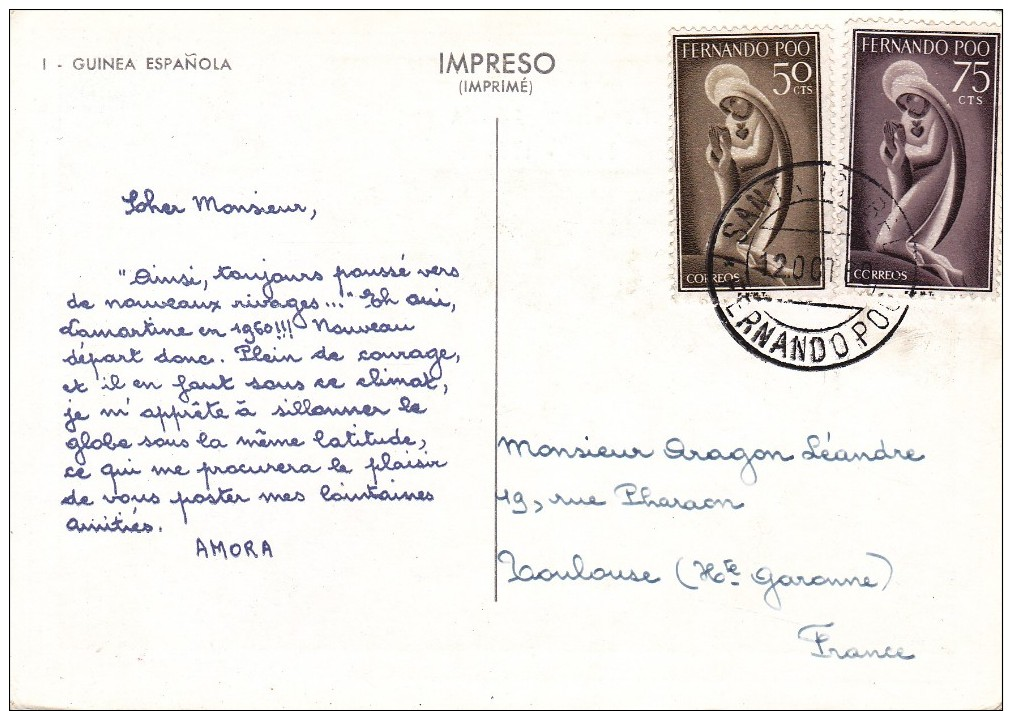 I - GUINEA ESPAÑOLA
IMPRESO
(IMPRIMÉ)
FERNANDO POO
50
CTS
CORREOS
FERNANDO POO
75
CTS
CORREOS
12.OCT
FERNANDO POO
Cher Monsieur,
"Ainsi, toujours poussé vers
de nouveaux rivages..." Eh oui,
Lamartine en 1960!!! Nouveau
départ donc. Plein de courage,
et il en faut sous ce climat,
je m'apprête à sillonner le
globe sous la même latitude,
ce qui me procurera le plaisir
de vous poster mes lointaines
amitiés.
AMORA
Monsieur Aragon Léandre
49, rue Pharaon
Toulouse (Hte Garonne)
France